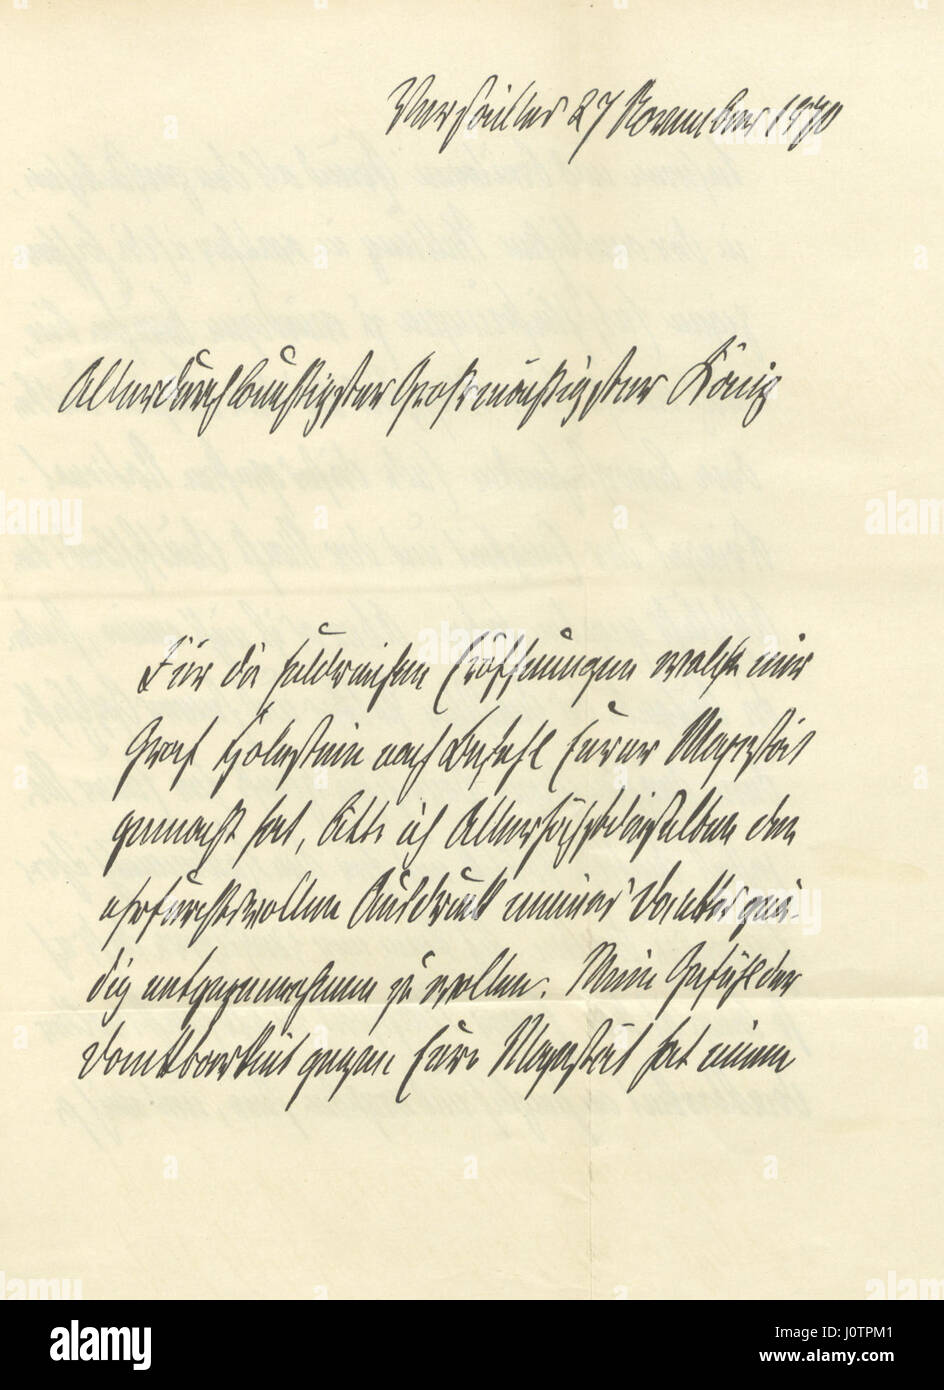 Versailles 27 November 1870
Allerdurchlauchtigster Großmächtigster König
Für die huldreichen Eröffnungen welche mir
Graf Holnstein nach Befehl Eurer Majestät
gemacht hat, bitte ich Allerhöchstdieselben den
ehrfurchtsvollen Ausdruck meines Dankes gnä-
dig entgegennehmen zu wollen. Mein Gefühl der
Dankbarkeit gegen Eure Majestät hat einen
alamy
a
alamy
J0TPM1
www.alamy.com